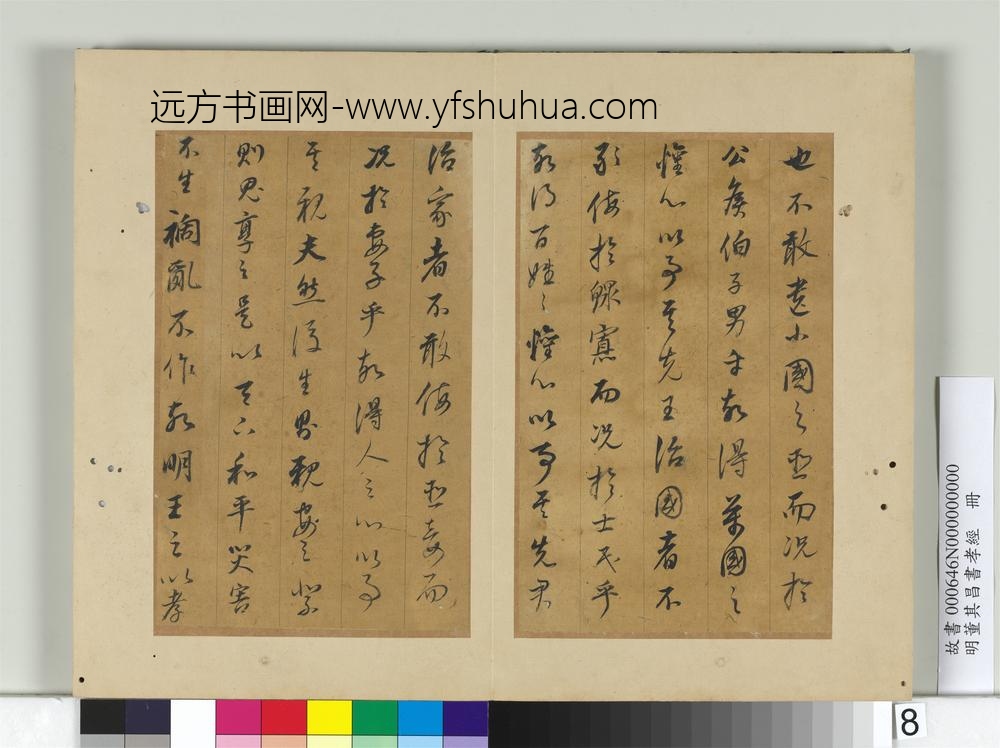 远方书画网-www.yfshuhua.com
也不敢遺小國之臣而况於
公侯伯子男乎故得萬國之
懽心以事其先王治國者不
敢侮於鰥寡而况於士民乎
故得百姓之懽心以事其先君
治家者不敢侮於臣妾而
况於妻子乎故得人之心以事
其親夫然後生則親安之祭
則鬼享之是以天下和平災害
不生禍亂不作故明王之以孝
故書 000646N000000000
明董其昌書孝經 冊
8